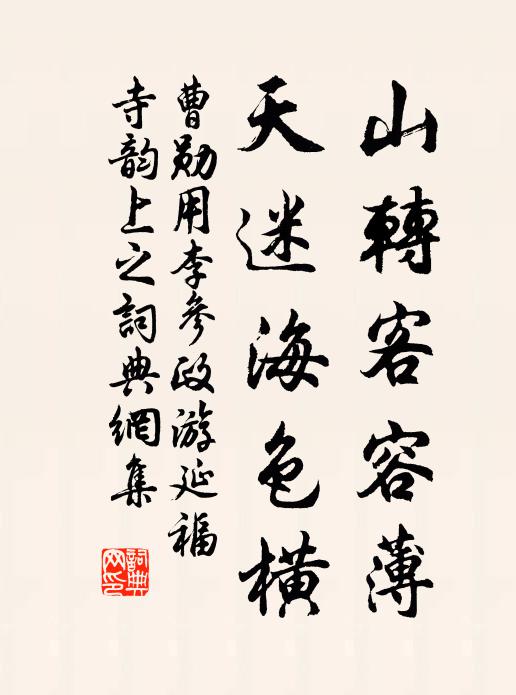 山轉客容薄
天迷海色橫
曹勛用李參政游延福
寺韵上之詞典網集
詞典網印